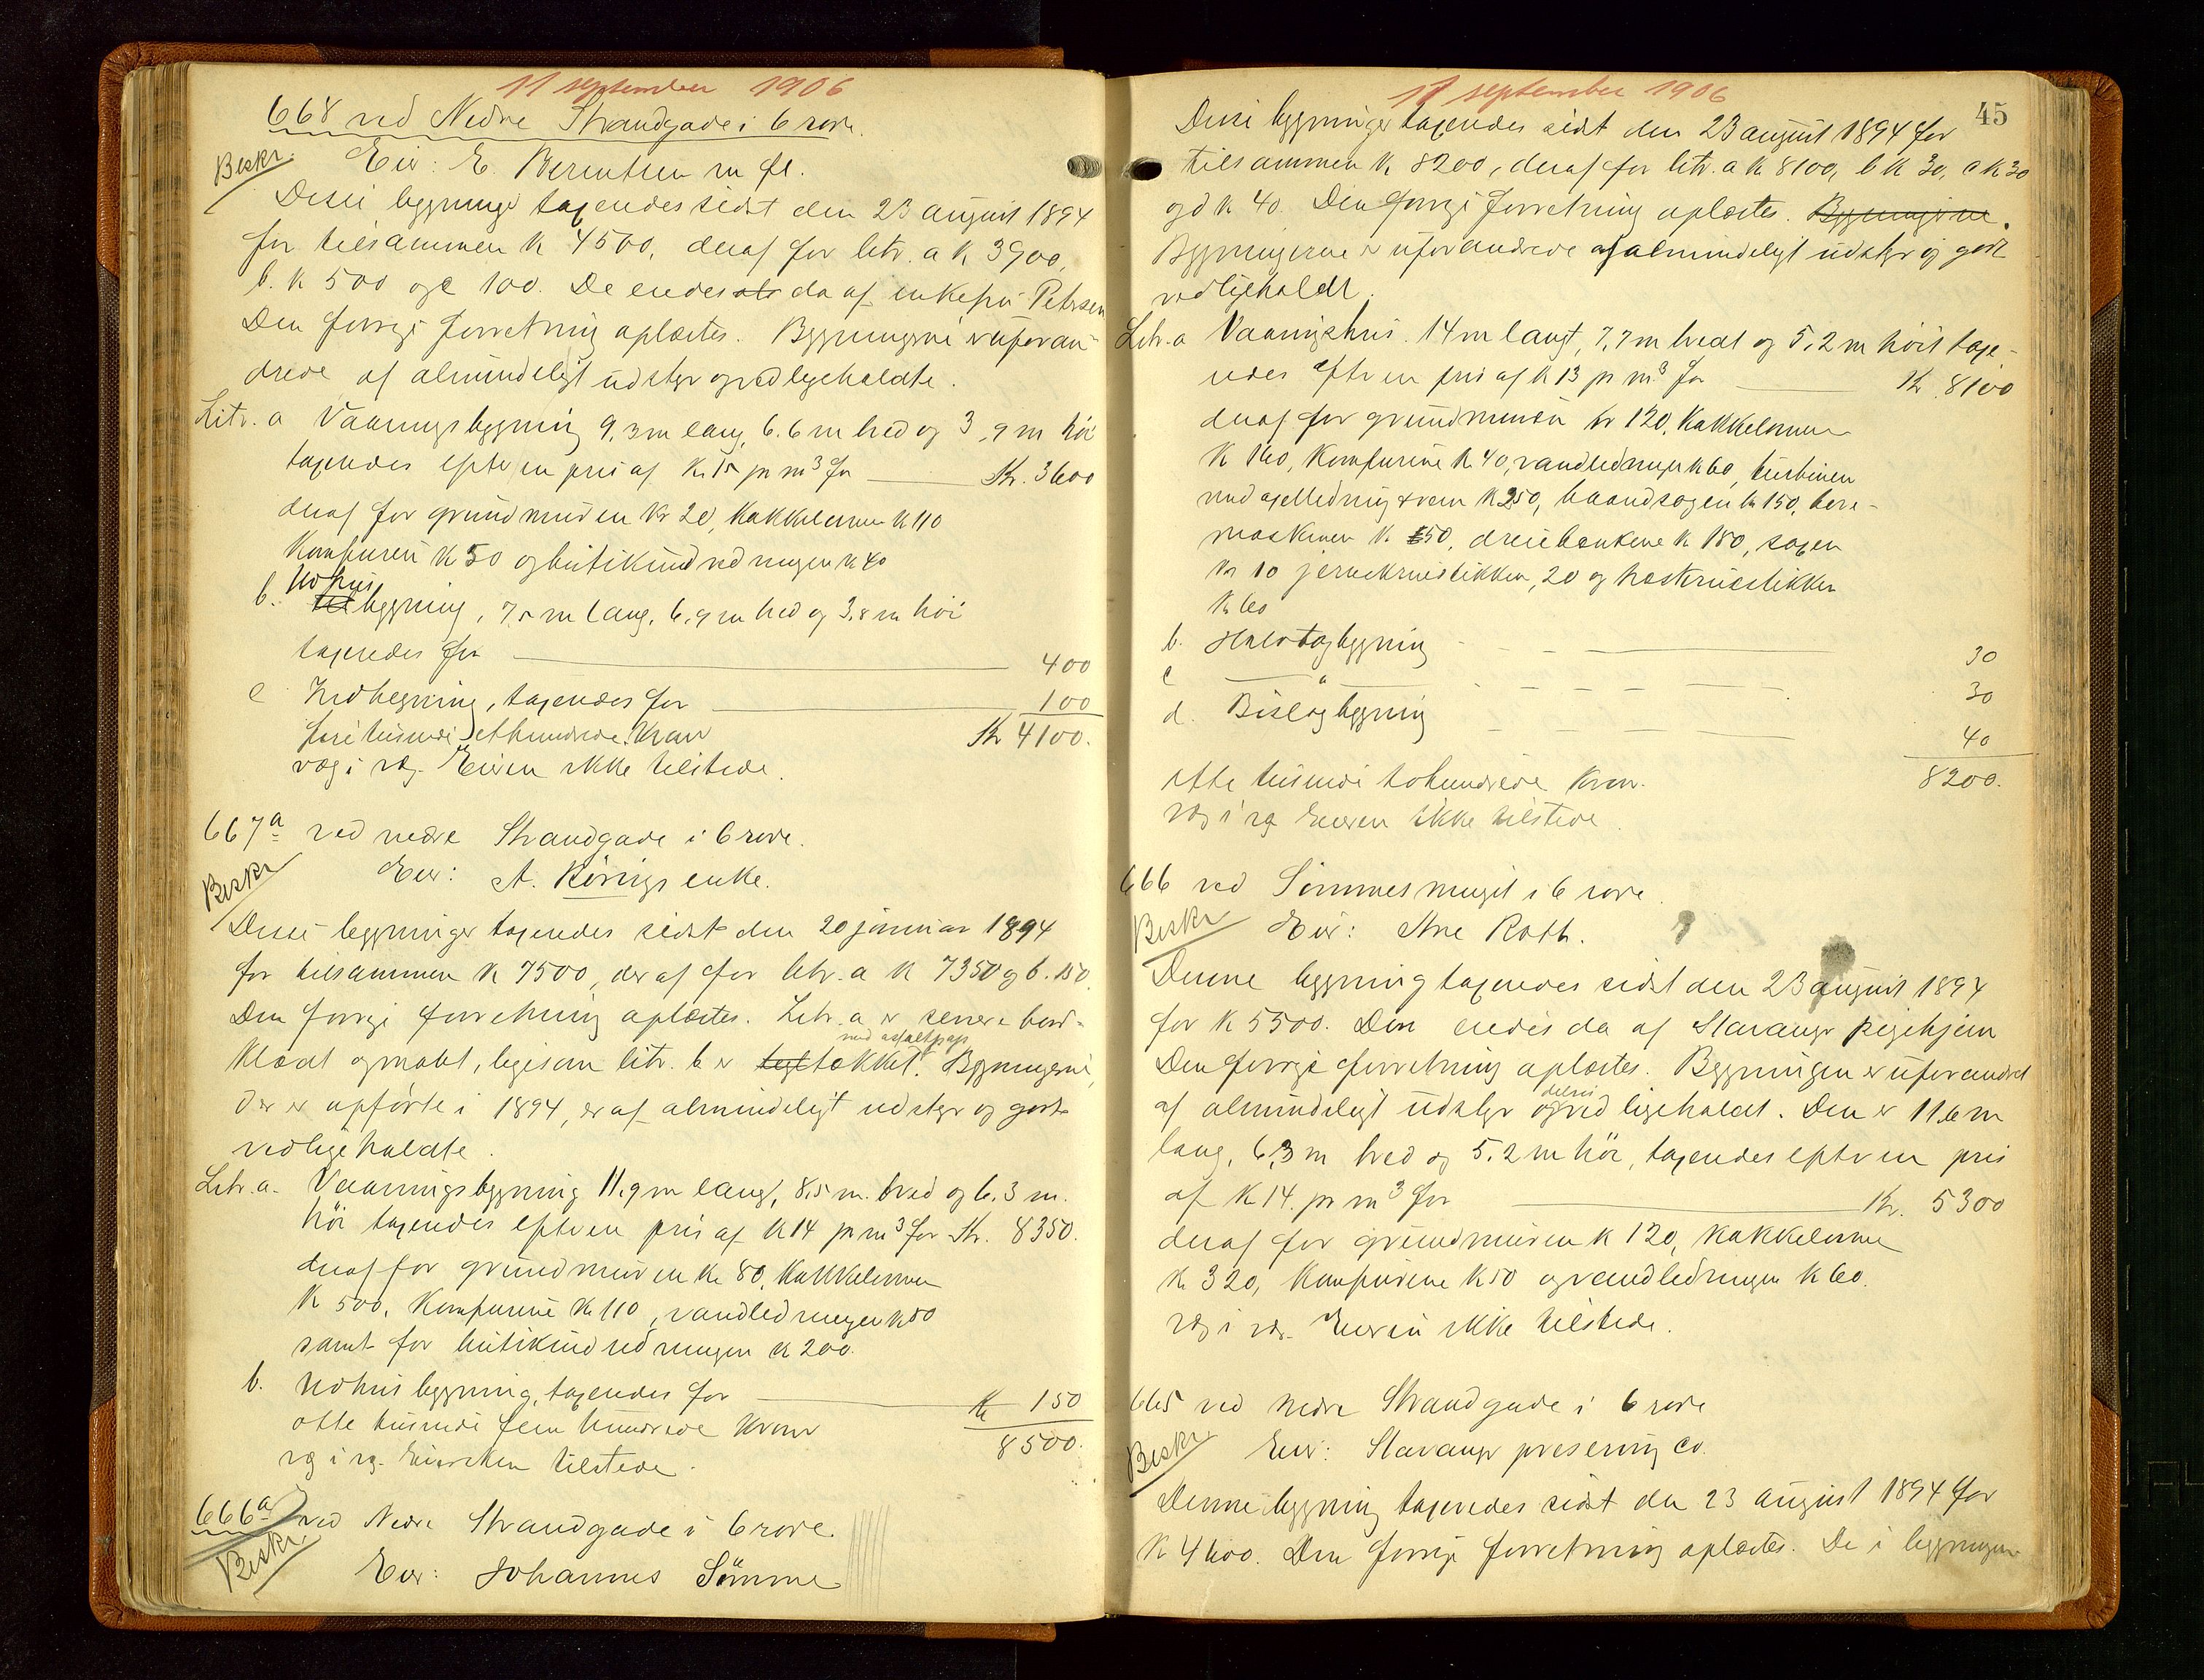 11 september 1906
668 ved Nedre Strandgade i 6 rode.
Beskr. Eier: E. Berentsen m fl.
Disse bygninger taxeredes sidst den 23 august 1894
for tilsammen k 4500, deraf for litr. a k 3900,
b. k 500 og c 100. De eiedes ats da af enkefru Petersen
Den forrige forretning oplæstes. Bygningerne er uforan-
drede af almindeligt udstyr og vedligeholdte.
Litr. a Vaaningsbygning 9,3 m lang, 6.6 m bred og 3,9 m höi
taxeredes efter en pris af Kr 15 pr m³ for Kr. 3600
deraf for grundmuren kr 20, kakkelovnen k 110
Komfuren k 50 og butikindredningen k 40
b. Udhus bygning, 7,5 m lang, 6,9 m bred og 3,8 m höi
taxeredes for 400
c Indhegning, taxeredes for 100
fire tusinde ethundrede Kroner Kr 4100.
væg i væg. Eieren ikke tilstede.
667a ved nedre Strandgade i 6 rode.
Beskr Eier: A. Königs enke.
Disse bygninger taxeredes sidst den 20 januar 1894
for tilsammen k 7500, deraf for litr. a k 7350 og b. 150.
Den forrige forretning oplæstes. Litr. a er senere bord-
med asfaltpap
klædt og malt, ligesom litr. b er tegl tækket. Bygningerne,
der er opförte i 1894, er af almindeligt udstyr og godt
vedligeholdte.
Litr. a. Vaaningsbygning 11,9 m lang, 8,5 m. bred og 6,3 m.
höi taxeredes efter en pris af k 14 pr m³ for Kr. 8350.
deraf for grundmuren kr 80, kakkelovnen
k 500, Komfurene kr 110, vandledningen k 50
samt for butikindredningen k 200.
b. Udhusbygning, taxeredes for Kr 150
otte tusinde fem hundrede kroner 8500.
væg i væg. Eiersken tilstede.
666a ved Nedre Strandgade i 6 rode.
Beskr. Eier: Johannes Sömme
11 september 1906
45
Disse bygninger taxeredes sidst den 23 august 1894 for
tilsammen k 8200, deraf for litr. a k 8100, b k 30, c k 30
og d k 40. Den forrige forretning oplæstes. Bygningerne.
Bygningerne er uforandrede af almindeligt udstyr og godt
vedligeholdt.
Litr. a Vaaningshus. 14 m langt, 7,7 m bredt og 5,2 m höit taxe-
redes efter en pris af k 13 pr m³ for Kr. 8100
deraf for grundmuren kr 120, kakkelovnen
k 160, Komfurene k 40, vandledninger k 60, turbinen
med rem k 250, baandsagen kr 150, bore-
maskinen k 50, dreiebænkene k 150, sagen
kr 10
k 60
b. Halvtagbygning 30
c " 30
d. Bislagbygning 40
otte tusinde tohundrede kroner. 8200.
væg i væg Eieren ikke tilstede
666 ved Sömmesmuget i 6 rode.
Beskr Eier: Ane Roth.
Denne bygning taxeredes sidst den 23 august 1894
for k 5500. Den eiedes da af Stavanger pigehjem
Den forrige forretning oplæstes. Bygningen er uforandret
delvis
af almindeligt udstyr og vedligeholdt. Den er 11,6 m
lang, 6,3 m bred og 5.2 m höi, taxeredes efter en pris
af k 14. pr m³ for Kr. 5300
deraf for grundmuren k 120, kakkelovne
k 320, Komfurene k 50 og vandledningen k 60.
væg i væg. Eieren ikke tilstede.
665 ved nedre Strandgade i 6 rode
Beskr. Eier: Stavanger preserving co.
Denne bygning taxeredes sidst den 23 august 1894 for
k 4600. Den forrige forretning oplæstes. De i bygningen